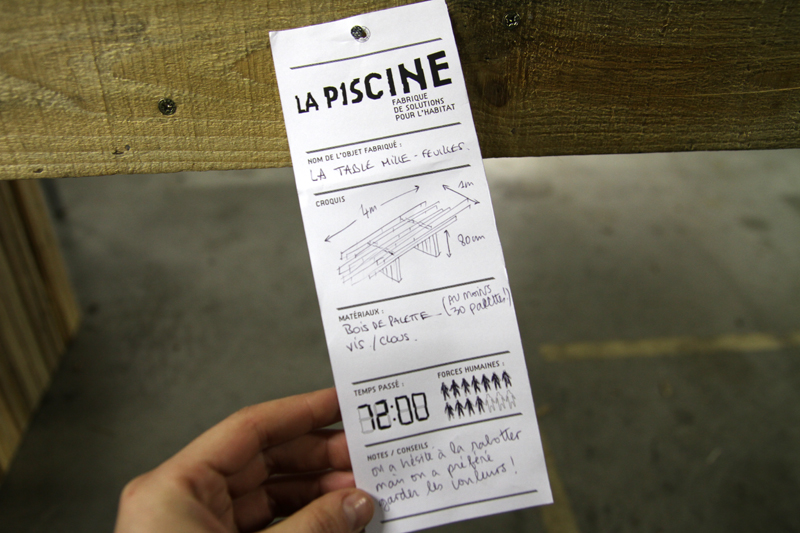 LA PISCINE
FABRIQUE
DE SOLUTIONS
POUR L'HABITAT
NOM DE L'OBJET FABRIQUÉ :
LA TABLE MILLE-FEUILLES.
CROQUIS
4m
1m
80cm
MATÉRIAUX :
BOIS DE PALETTE - (AU MOINS
30 palettes!)
VIS / CLOUS.
TEMPS PASSÉ :
72:00
FORCES HUMAINES :
NOTES / CONSEILS :
on a hésité à la rabotter
mais on a préféré
garder les couleurs !